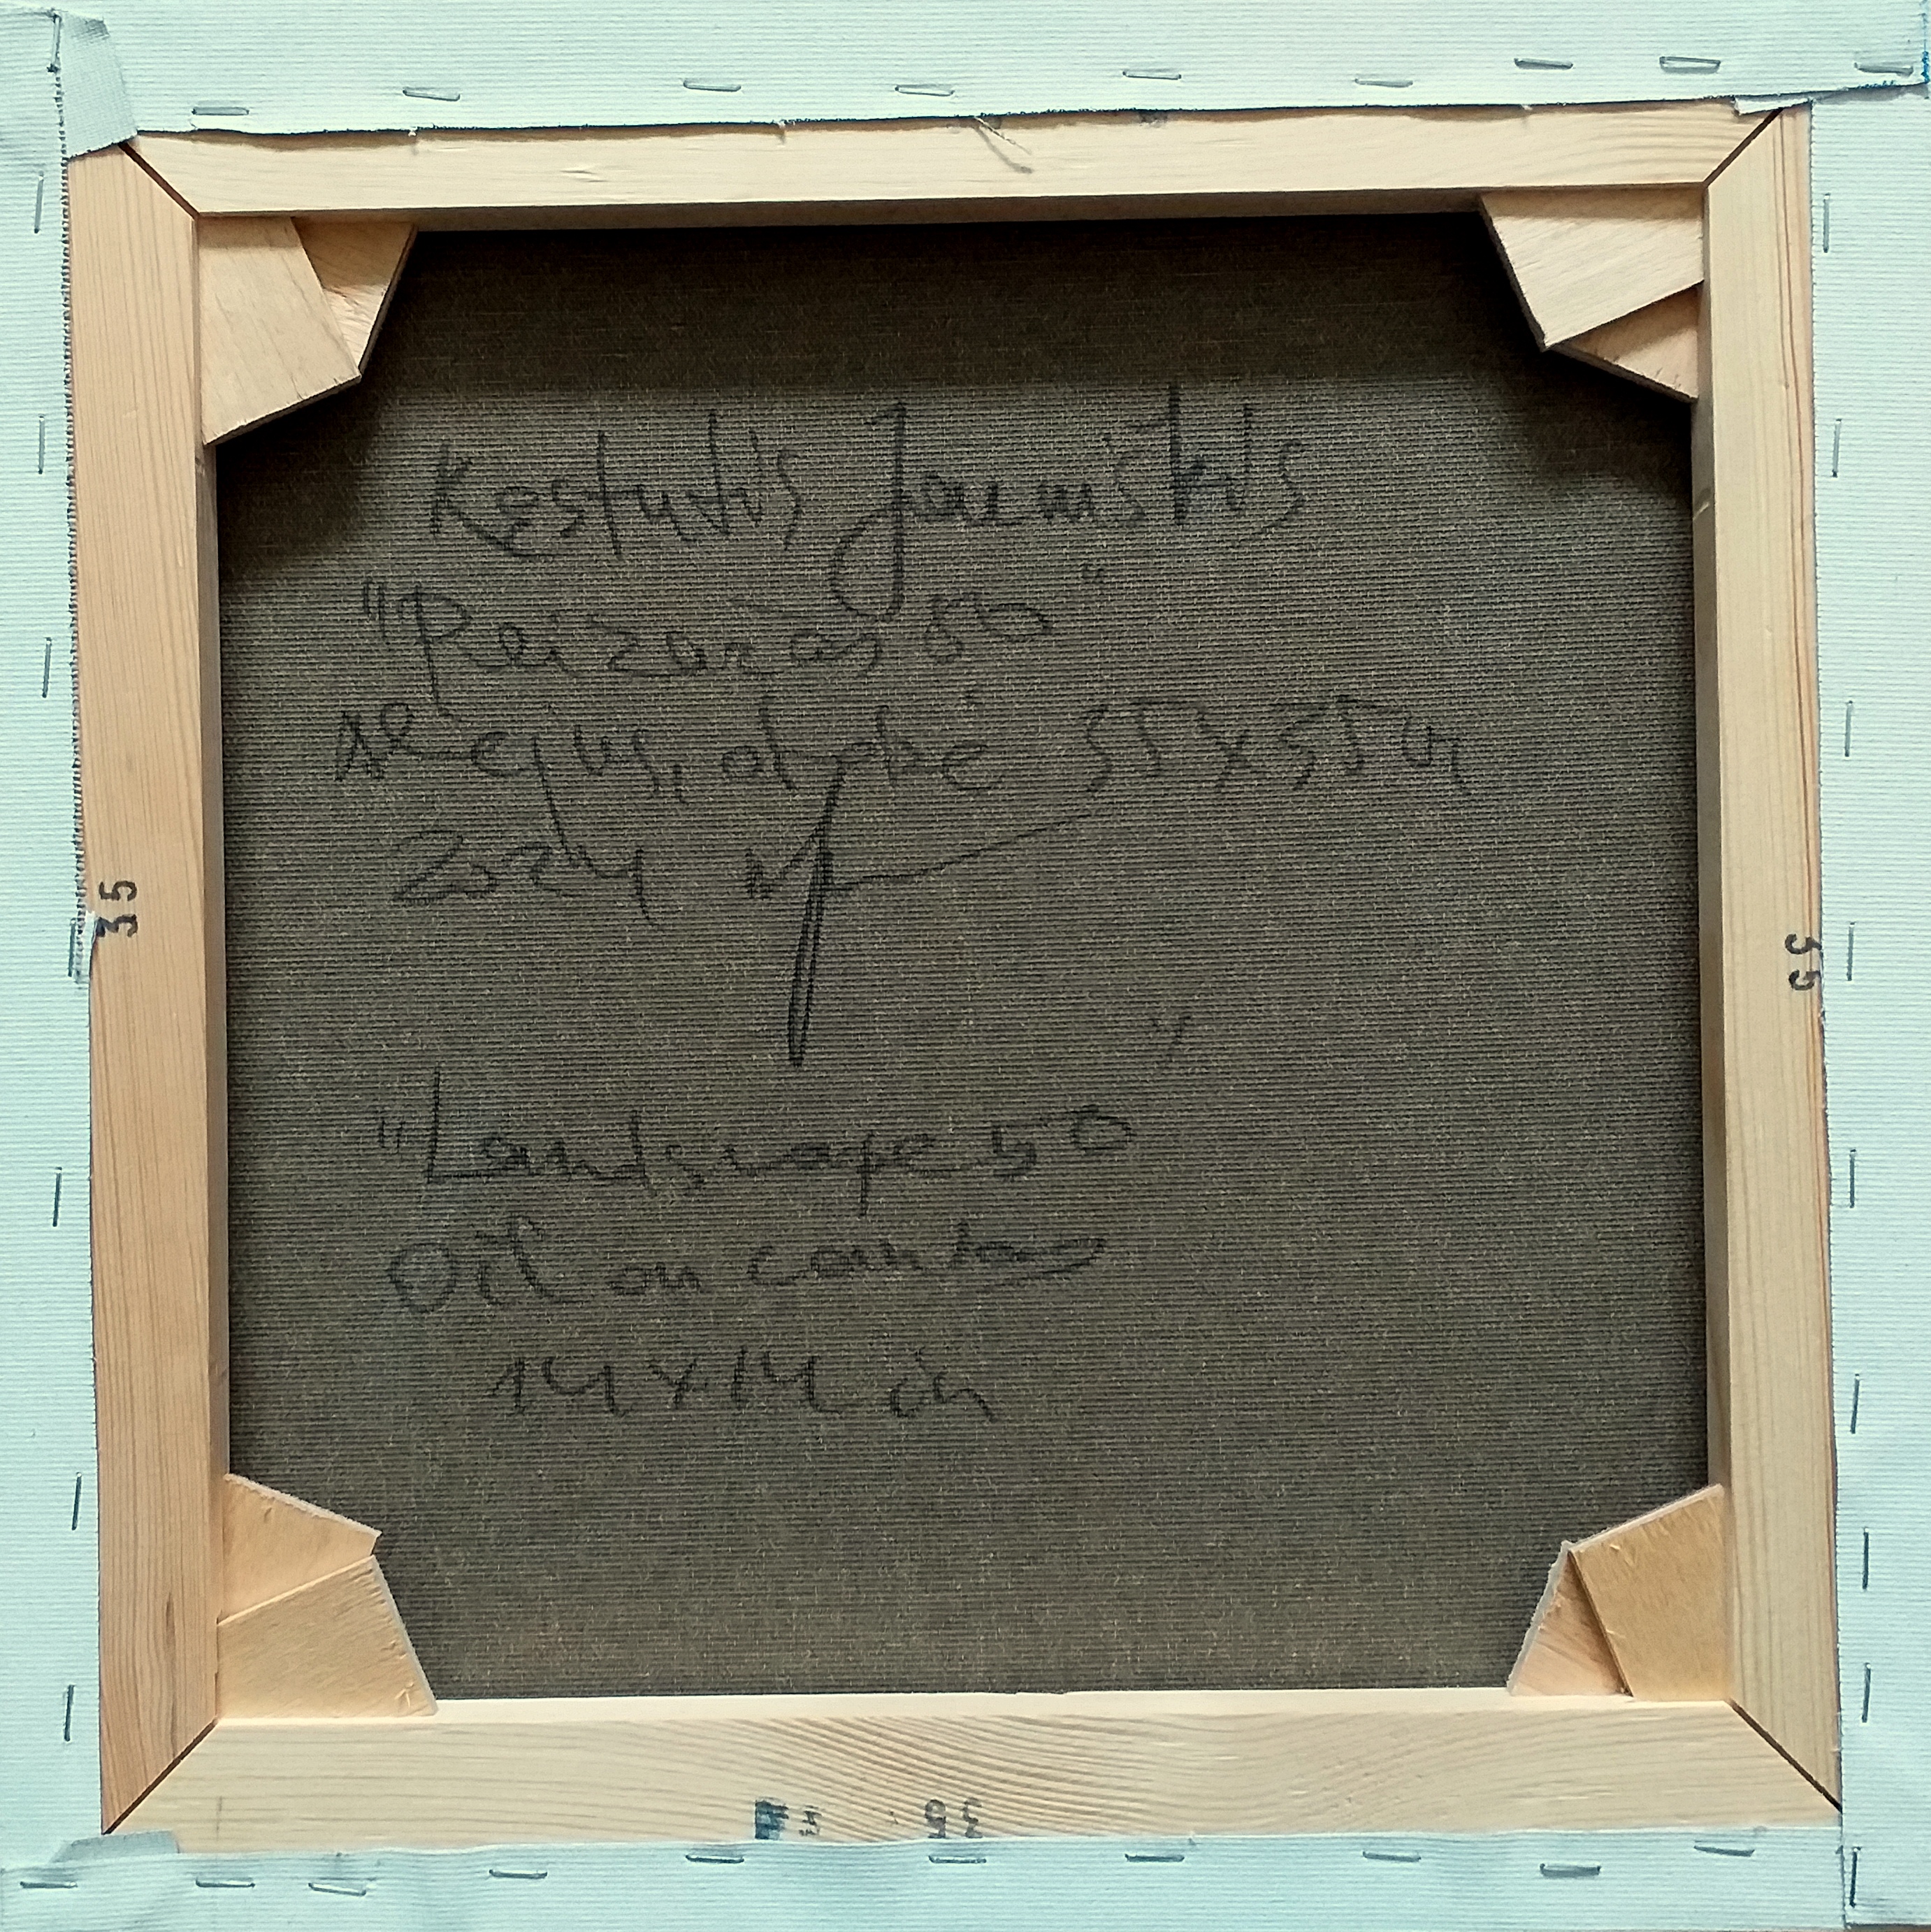 Kęstutis Jauniškis
"Peizažas 50"
aliejus, drobė 35x35 cm
2024
"Landscape 50"
Oil on canvas
14x14 in
35
35
35